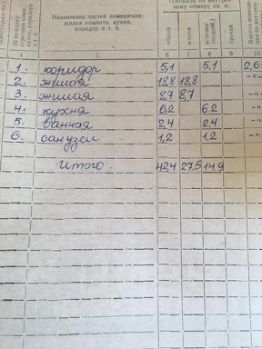 Назначение частей помещения:
жилая комната, кухня,
коридор и т. п.
1. коридор 5,1 5,1 2,6
2. жилая 18,8 18,8 -"-
3. жилая 8,7 8,7 -"-
4. кухня 6,2 6,2
5. ванная 2,4 2,4
6. санузел 1,2 1,2
Итого 42,4 27,5 14,9